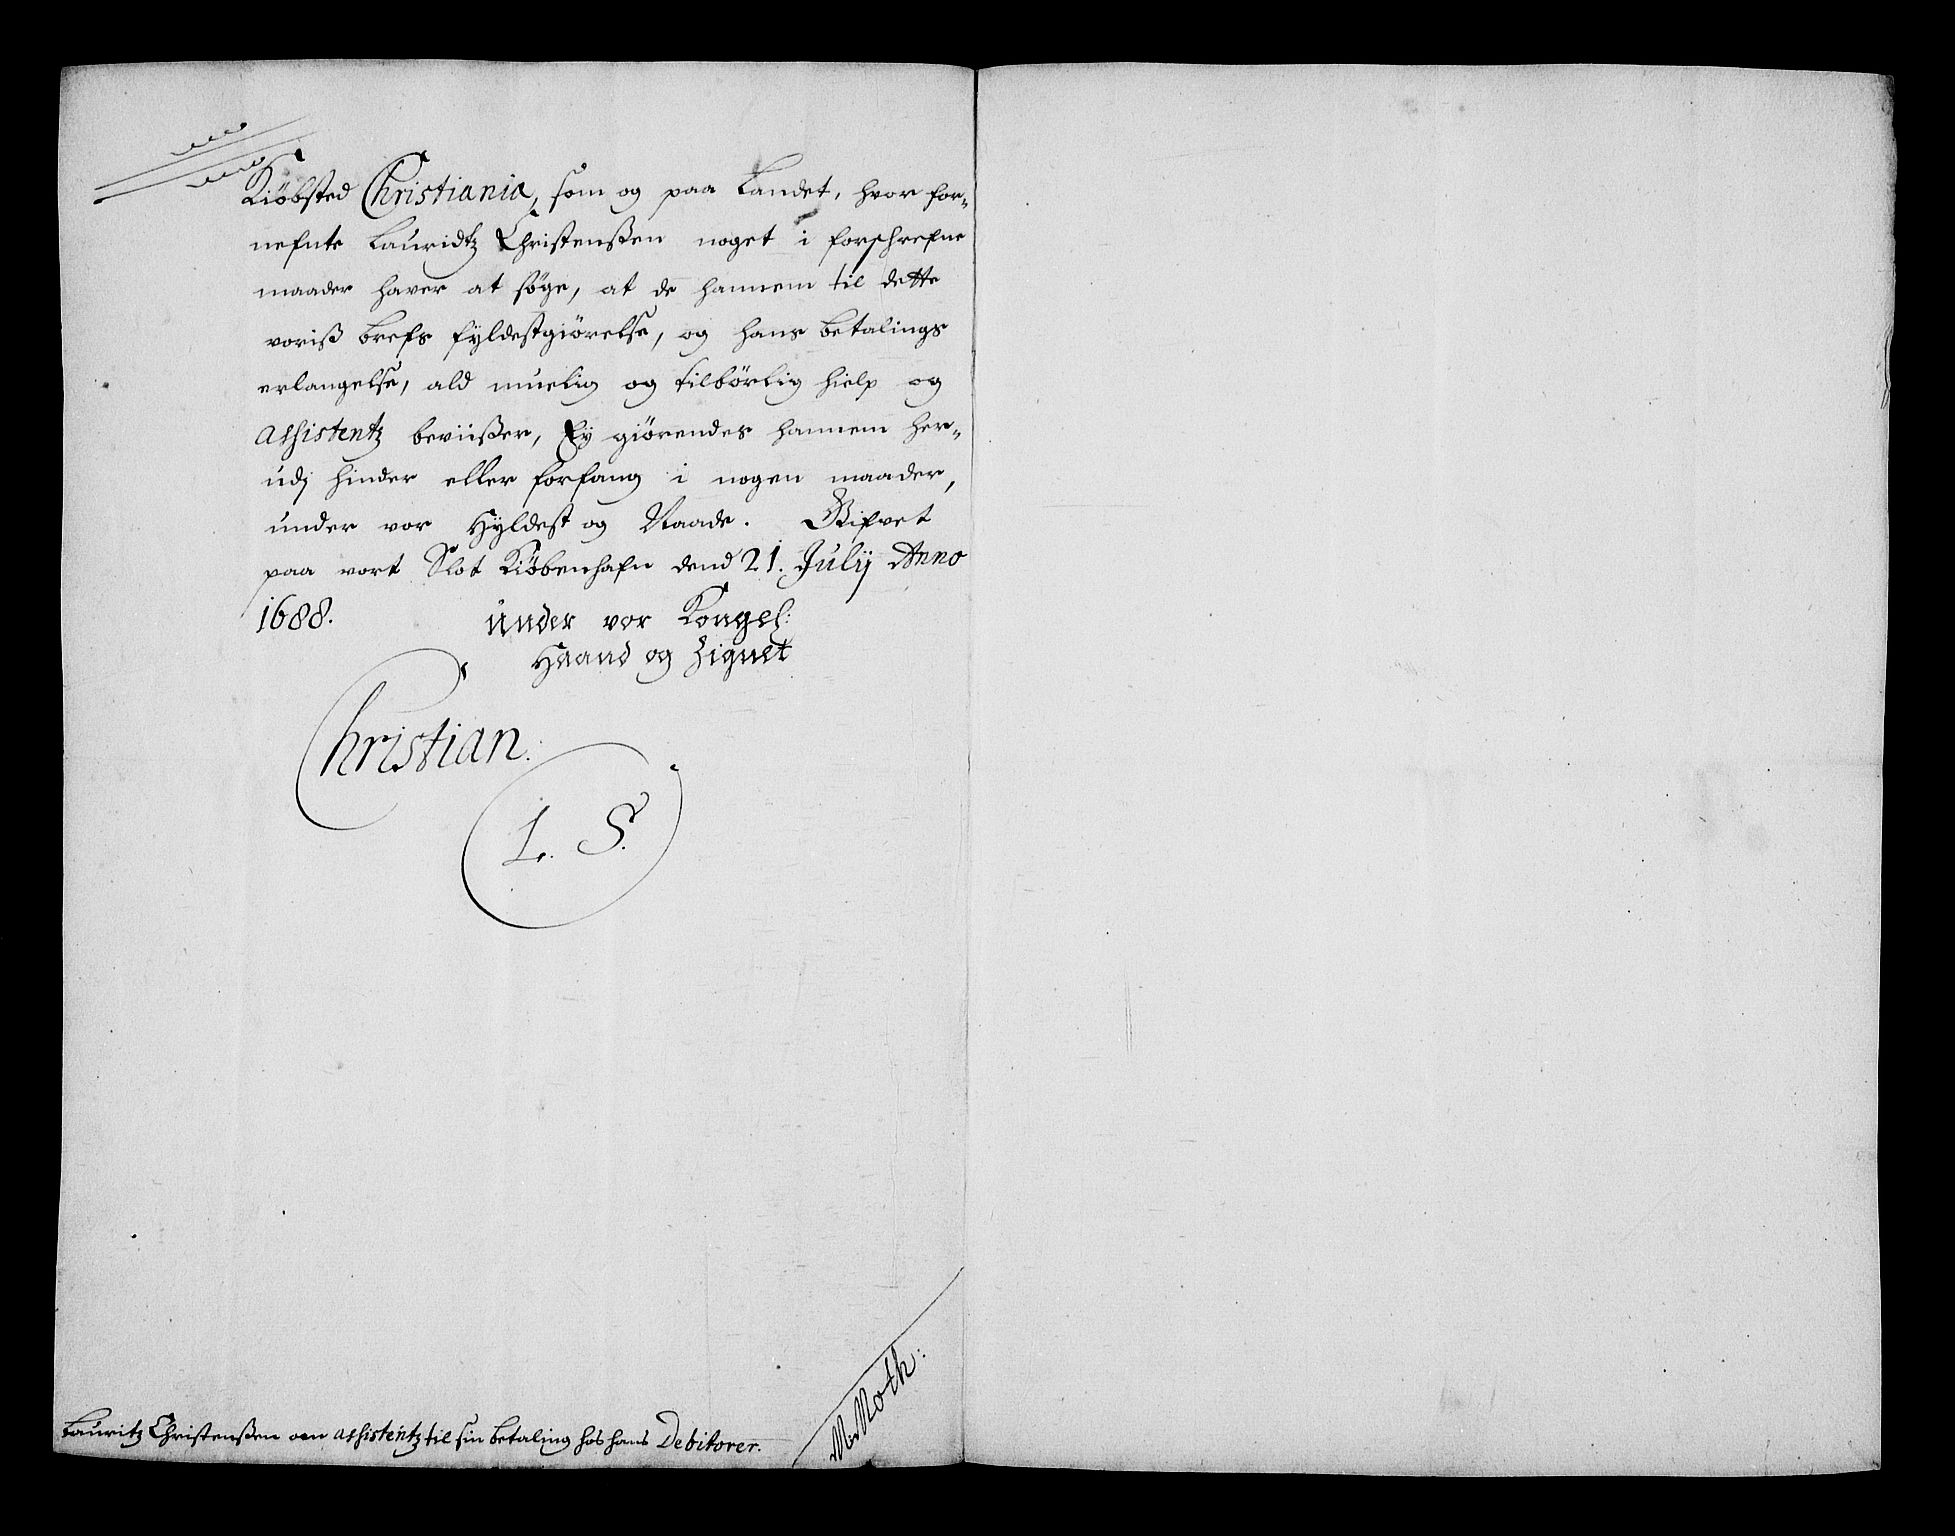 Kiöbsted Christiania, som og paa Landet, hvor for-
nefnte Lauridtz Christenßen noget i forschrefne
maader hafver at søge, at de hannem til dette
voriß brefs fyldestgiörelse, og hans betalings
erlangelse, ald muelig og tilbörlig hielp og
assistentz beviißer, Ey giörendes hannem her-
udj hinder eller forfang i nogen maader,
under vor Hyldest og Naade. Gifvet
paa vort Slot Kiöbenhafn dend 21. Julij Anno
1688. Under vor Kongel:
Haand og Zignet
Christian.
L. S.
M. Moth:
Lauritz Christenßen om assistentz til sin betaling hos hans Debitorer.